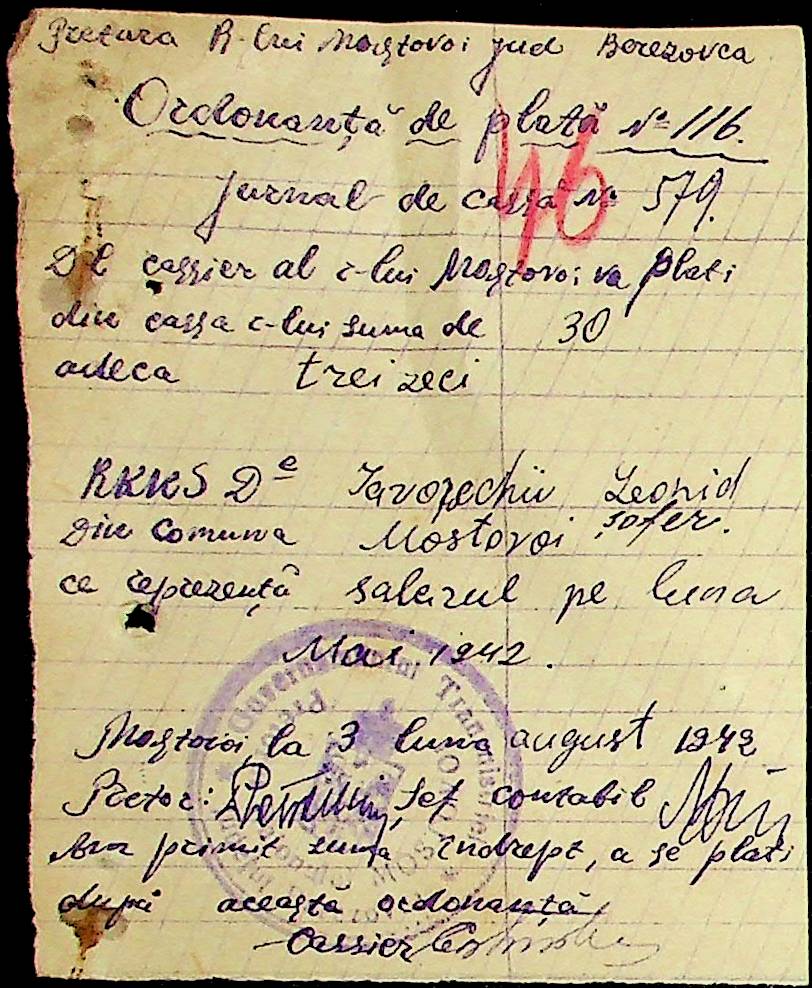 Pretura R-lui Mostovoi jud Berezovca
Ordonanță de plată № 116.
46
Jurnal de cassă № 579.
Dl cassier al r-lui Mostovoi va plati
din cassa r-lui suma de 30
adeca trei zeci
RKKS De Iavorschii Leonid
Din comuna Mostovoi șofer.
ce reprezentă salarul pe luna
Mai 1942.
Mostovoi, la 3 luna august 1942
Pretor: Șef contabil
Am primit suma indrept, a se plati
după această ordonanță
Cassier
Guvernământul Transnistriei